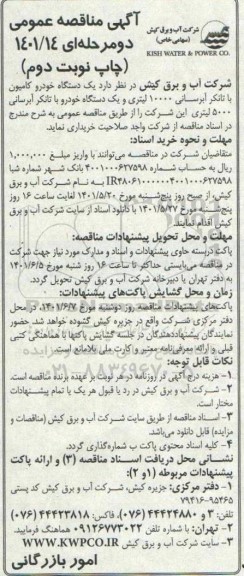 شرکت آب و برق کیش
(سهامی خاص)
KISH WATER & POWER CO.
آگهی مناقصه عمومی
دومرحله‌ای ۱۴۰۱/۱۴
(چاپ نوبت دوم)
شرکت آب و برق کیش در نظر دارد یک دستگاه خودرو کامیون
با تانکر آبرسانی ۱۰۰۰۰ لیتری و یک دستگاه خودرو با تانکر آبرسانی
۵۰۰۰ لیتری این شرکت را از طریق مناقصه عمومی به شرح مندرج
در اسناد مناقصه از شرکت واجد صلاحیت خریداری نماید.
مهلت و نحوه خرید اسناد:
متقاضیان شرکت در مناقصه می‌توانند با واریز مبلغ ۱,۰۰۰,۰۰۰
ریال به حساب شماره ۴۰۰۱۰۰۰۶۲۷۵۹۸ بانک شهر شماره شبا
به نام شرکت آب و برق
کیش، از صبح روز پنج‌شنبه مورخ ۱۴۰۱/۵/۲۰ لغایت ساعت ۱۶ روز
پنج‌شنبه مورخ ۱۴۰۱/۵/۲۷ با دانلود اسناد از سایت شرکت آب و برق
کیش اقدام نمایند.
مهلت و محل تحویل پیشنهادات مناقصه:
پاکت دربسته حاوی پیشنهادات و اسناد و مدارک مورد نیاز جهت شرکت
در مناقصه می‌بایستی حداکثر تا ساعت ۱۶ روز شنبه مورخ ۱۴۰۱/۶/۵
به دفتر تهران یا دبیرخانه شرکت آب و برق کیش تحویل گردد.
زمان و محل گشایش پاکت‌های پیشنهادات:
پاکت‌های پیشنهادات مناقصه روز دوشنبه مورخ ۱۴۰۱/۶/۷، در محل
دفتر مرکزی شرکت واقع در جزیره کیش گشوده خواهد شد. حضور
نمایندگان پیشنهاددهندگان در جلسه گشایش پاکتها با هماهنگی کتبی
قبلی و ارائه معرفی‌نامه معتبر و کارت ملی بلامانع است.
نکات قابل توجه:
۱- هزینه درج آگهی در روزنامه در هر نوبت بر عهده برنده مناقصه است.
۲- شرکت آب و برق کیش در رد یا قبول هر یک یا تمام پیشنهادات
مختار است.
۳- اسناد مناقصه از طریق سایت شرکت آب و برق کیش (مناقصات و
مزایده) قابل دانلود می‌باشد.
۴- کلیه اسناد محتوی پاکت ب شماره‌گذاری گردد.
نشانی محل دریافت اسناد مناقصه (۳) و ارائه پاکت
پیشنهادات مربوطه (۱و ۲):
۱- دفتر مرکزی: جزیره کیش، شرکت آب و برق کیش کد پستی
۷۹۴۱۶-۹۵۴۶۵
تلفن: ۲ و ۴۴۴۲۴۸۸۰ (۰۷۶)، فاکس: ۴۴۴۲۳۸۱۸ (۰۷۶)
۲- تهران: با شماره تلفن ۰۹۱۲۶۷۷۳۰۲۲ هماهنگ فرمایید.
۳- سایت شرکت آب و برق کیش WWW.KWPCO.IR
امور بازرگانی